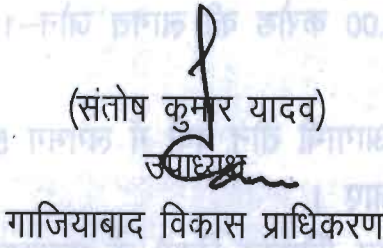 (संतोष कुमार यादव)
उपाध्यक्ष
गाजियाबाद विकास प्राधिकरण